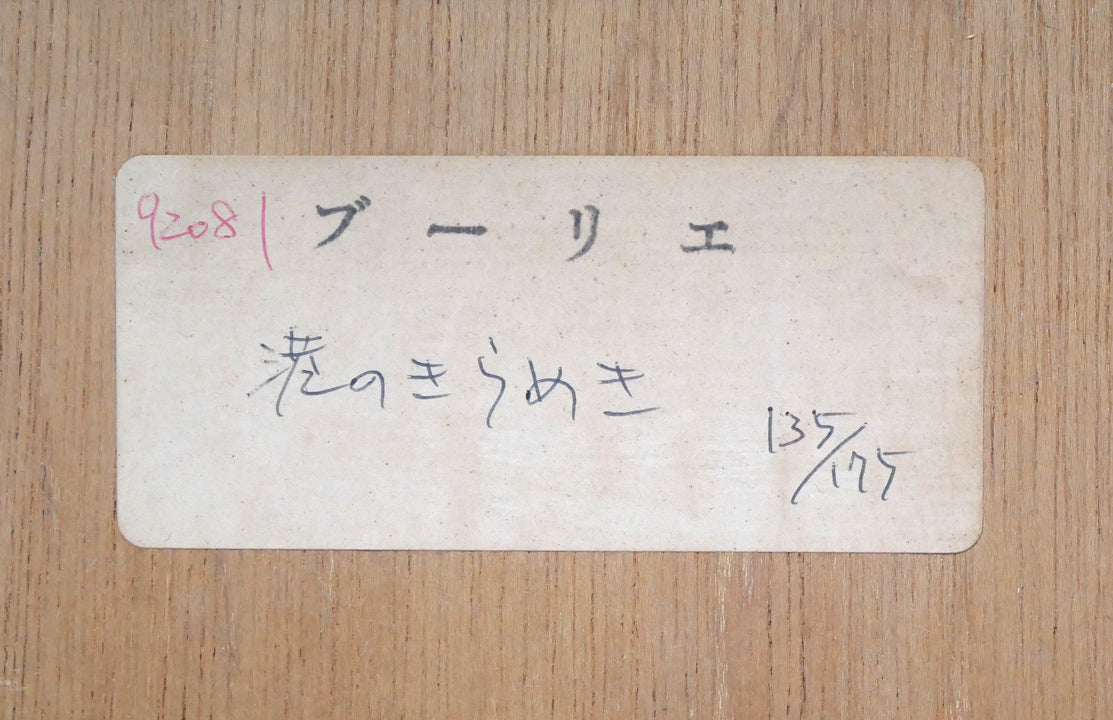 92081 ブーリエ
港のきらめき
135/175